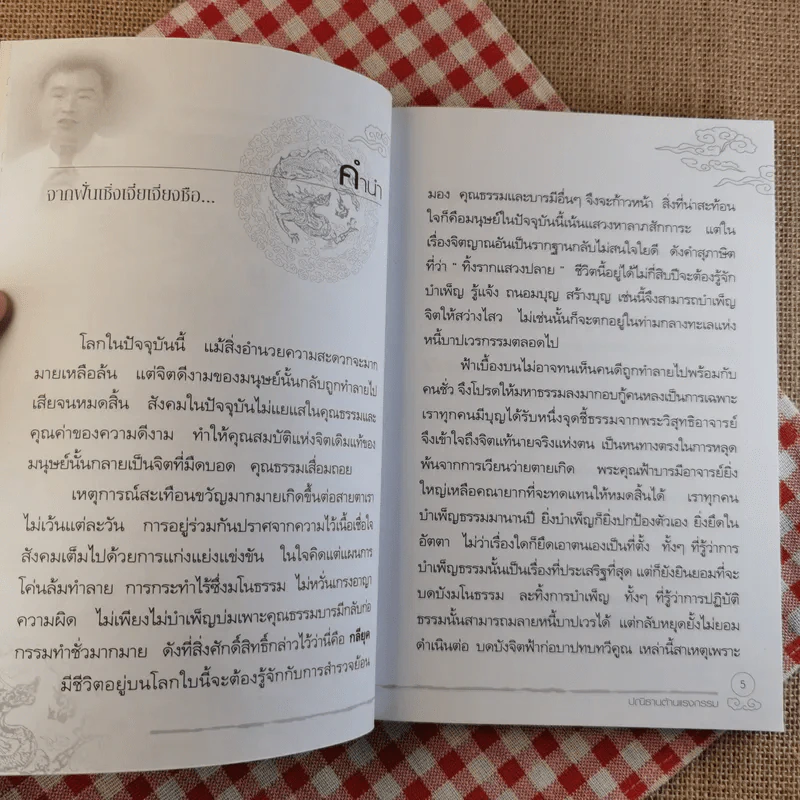 คำนำ
จากฟั่นเชิ่งเจี่ยเจียงซือ...
โลกในปัจจุบันนี้ แม้สิ่งอำนวยความสะดวกจะมาก
มายเหลือล้น แต่จิตดีงามของมนุษย์นั้นกลับถูกทำลายไป
เสียจนหมดสิ้น สังคมในปัจจุบันไม่แยแสในคุณธรรมและ
คุณค่าของความดีงาม ทำให้คุณสมบัติแห่งจิตเดิมแท้ของ
มนุษย์นั้นกลายเป็นจิตที่มืดบอด คุณธรรมเสื่อมถอย
เหตุการณ์สะเทือนขวัญมากมายเกิดขึ้นต่อสายตาเรา
ไม่เว้นแต่ละวัน การอยู่ร่วมกันปราศจากความไว้เนื้อเชื่อใจ
สังคมเต็มไปด้วยการแก่งแย่งแข่งขัน ในใจคิดแต่แผนการ
โค่นล้มทำลาย การกระทำไร้ซึ่งมโนธรรม ไม่หวั่นเกรงอาญา
ความผิด ไม่เพียงไม่บำเพ็ญบ่มเพาะคุณธรรมบารมีกลับก่อ
กรรมทำชั่วมากมาย ดังที่สิ่งศักดิ์สิทธิ์กล่าวไว้ว่านี่คือ กลียุค
มีชีวิตอยู่บนโลกใบนี้จะต้องรู้จักกับการสำรวจย้อน
มอง คุณธรรมและบารมีอื่นๆ จึงจะก้าวหน้า สิ่งที่น่าสะท้อน
ใจก็คือมนุษย์ในปัจจุบันนี้เน้นแสวงหาลาภสักการะ แต่ใน
เรื่องจิตญาณอันเป็นรากฐานกลับไม่สนใจใยดี ดังคำสุภาษิต
ที่ว่า " ทิ้งรากแสวงปลาย " ชีวิตนี้อยู่ได้ไม่กี่สิบปีจะต้องรู้จัก
บำเพ็ญ รู้แจ้ง ถนอมบุญ สร้างบุญ เช่นนี้จึงสามารถบำเพ็ญ
จิตให้สว่างไสว ไม่เช่นนั้นก็จะตกอยู่ในท่ามกลางทะเลแห่ง
หนี้บาปเวรกรรมตลอดไป
ฟ้าเบื้องบนไม่อาจทนเห็นคนดีถูกทำลายไปพร้อมกับ
คนชั่ว จึงโปรดให้มหาธรรมลงมากอบกู้คนหลงเป็นการเฉพาะ
เราทุกคนมีบุญได้รับหนึ่งจุดชี้ธรรมจากพระวิสุทธิอาจารย์
จึงเข้าใจถึงจิตแท้นายจริงแห่งตน เป็นหนทางตรงในการหลุด
พ้นจากการเวียนว่ายตายเกิด พระคุณฟ้าบารมีอาจารย์ยิ่ง
ใหญ่เหลือคณายากที่จะทดแทนให้หมดสิ้นได้ เราทุกคน
บำเพ็ญธรรมมานานปี ยิ่งบำเพ็ญก็ยิ่งปกป้องตัวเอง ยิ่งยึดใน
อัตตา ไม่ว่าเรื่องใดก็ยึดเอาตนเองเป็นที่ตั้ง ทั้งๆ ที่รู้ว่าการ
บำเพ็ญธรรมนั้นเป็นเรื่องที่ประเสริฐที่สุด แต่ก็ยังยินยอมที่จะ
บดบังมโนธรรม ละทิ้งการบำเพ็ญ ทั้งๆ ที่รู้ว่าการปฏิบัติ
ธรรมนั้นสามารถมลายหนี้บาปเวรได้ แต่กลับหยุดยั้งไม่ยอม
ดำเนินต่อ บดบังจิตฟ้าก่อบาปทบทวีคูณ เหล่านี้สาเหตุเพราะ
5
ปณิธานต้านแรงกรรม